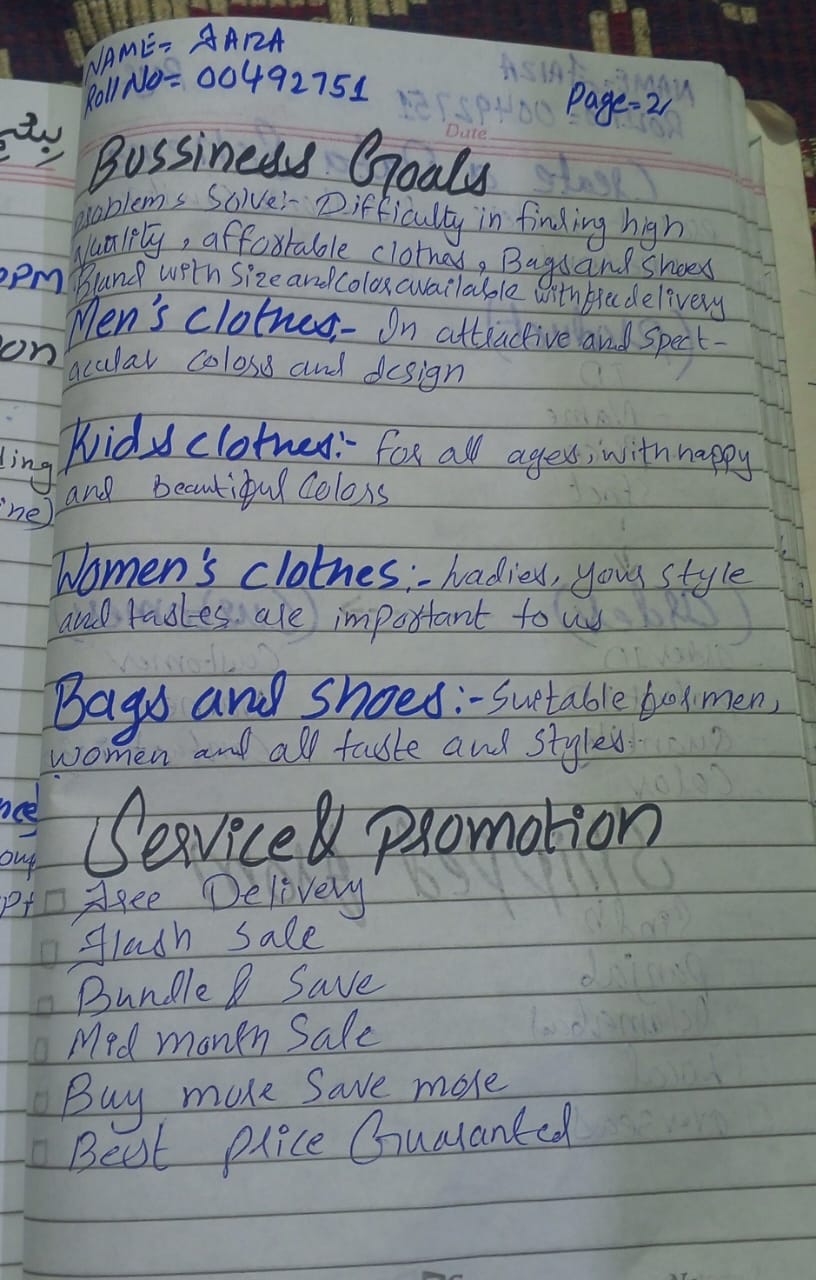 NAME= FAIZA
Roll No= 00492751
Page=2
Date
Bussiness Goals
problems Solve:- Difficulty in finding high
Quality, affortable clothes, Bags and Shoes
Brand with Size and color available with free delivery
Men's clothes:- In attractive and Spect-
acular colors and design
Kids clothes:- for all ages, with happy
and beautiful Colors
Women's clothes:- Ladies, your style
and tastes are important to us
Bags and shoes:- Suetable for men,
women and all taste and styles.
Service & Promotion
□ Free Delivery
□ Flash Sale
□ Bundle & Save
□ Mid month Sale
□ Buy more Save more
□ Best price Guaranted